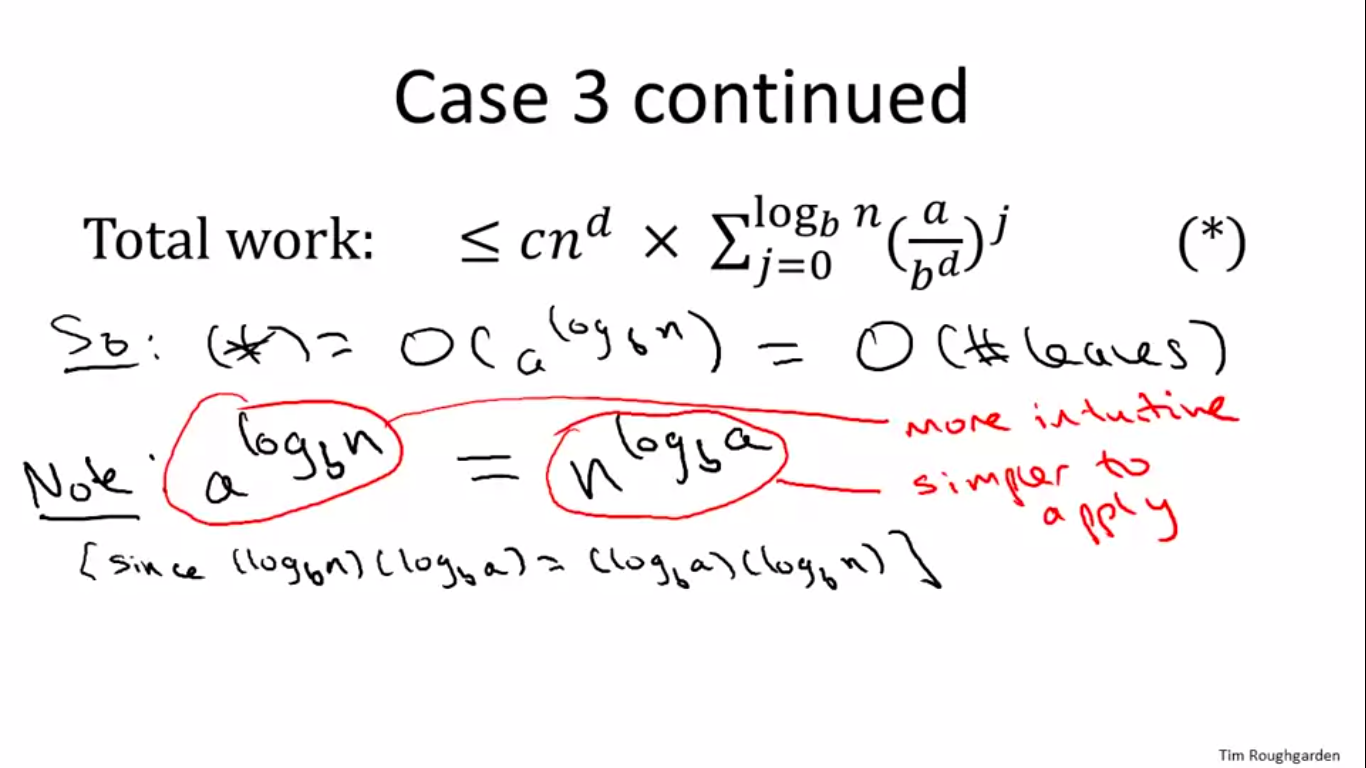 Case 3 continued
Total work: ≤ cn^d × ∑_{j=0}^{log_b n} (a/b^d)^j (*)
So: (*) = O(a^{log_b n}) = O(# leaves)
more intuitive
Note: a^{log_b n} = n^{log_b a}
simpler to
apply
[since (log_b n)(log_b a) = (log_b a)(log_b n)]
Tim Roughgarden